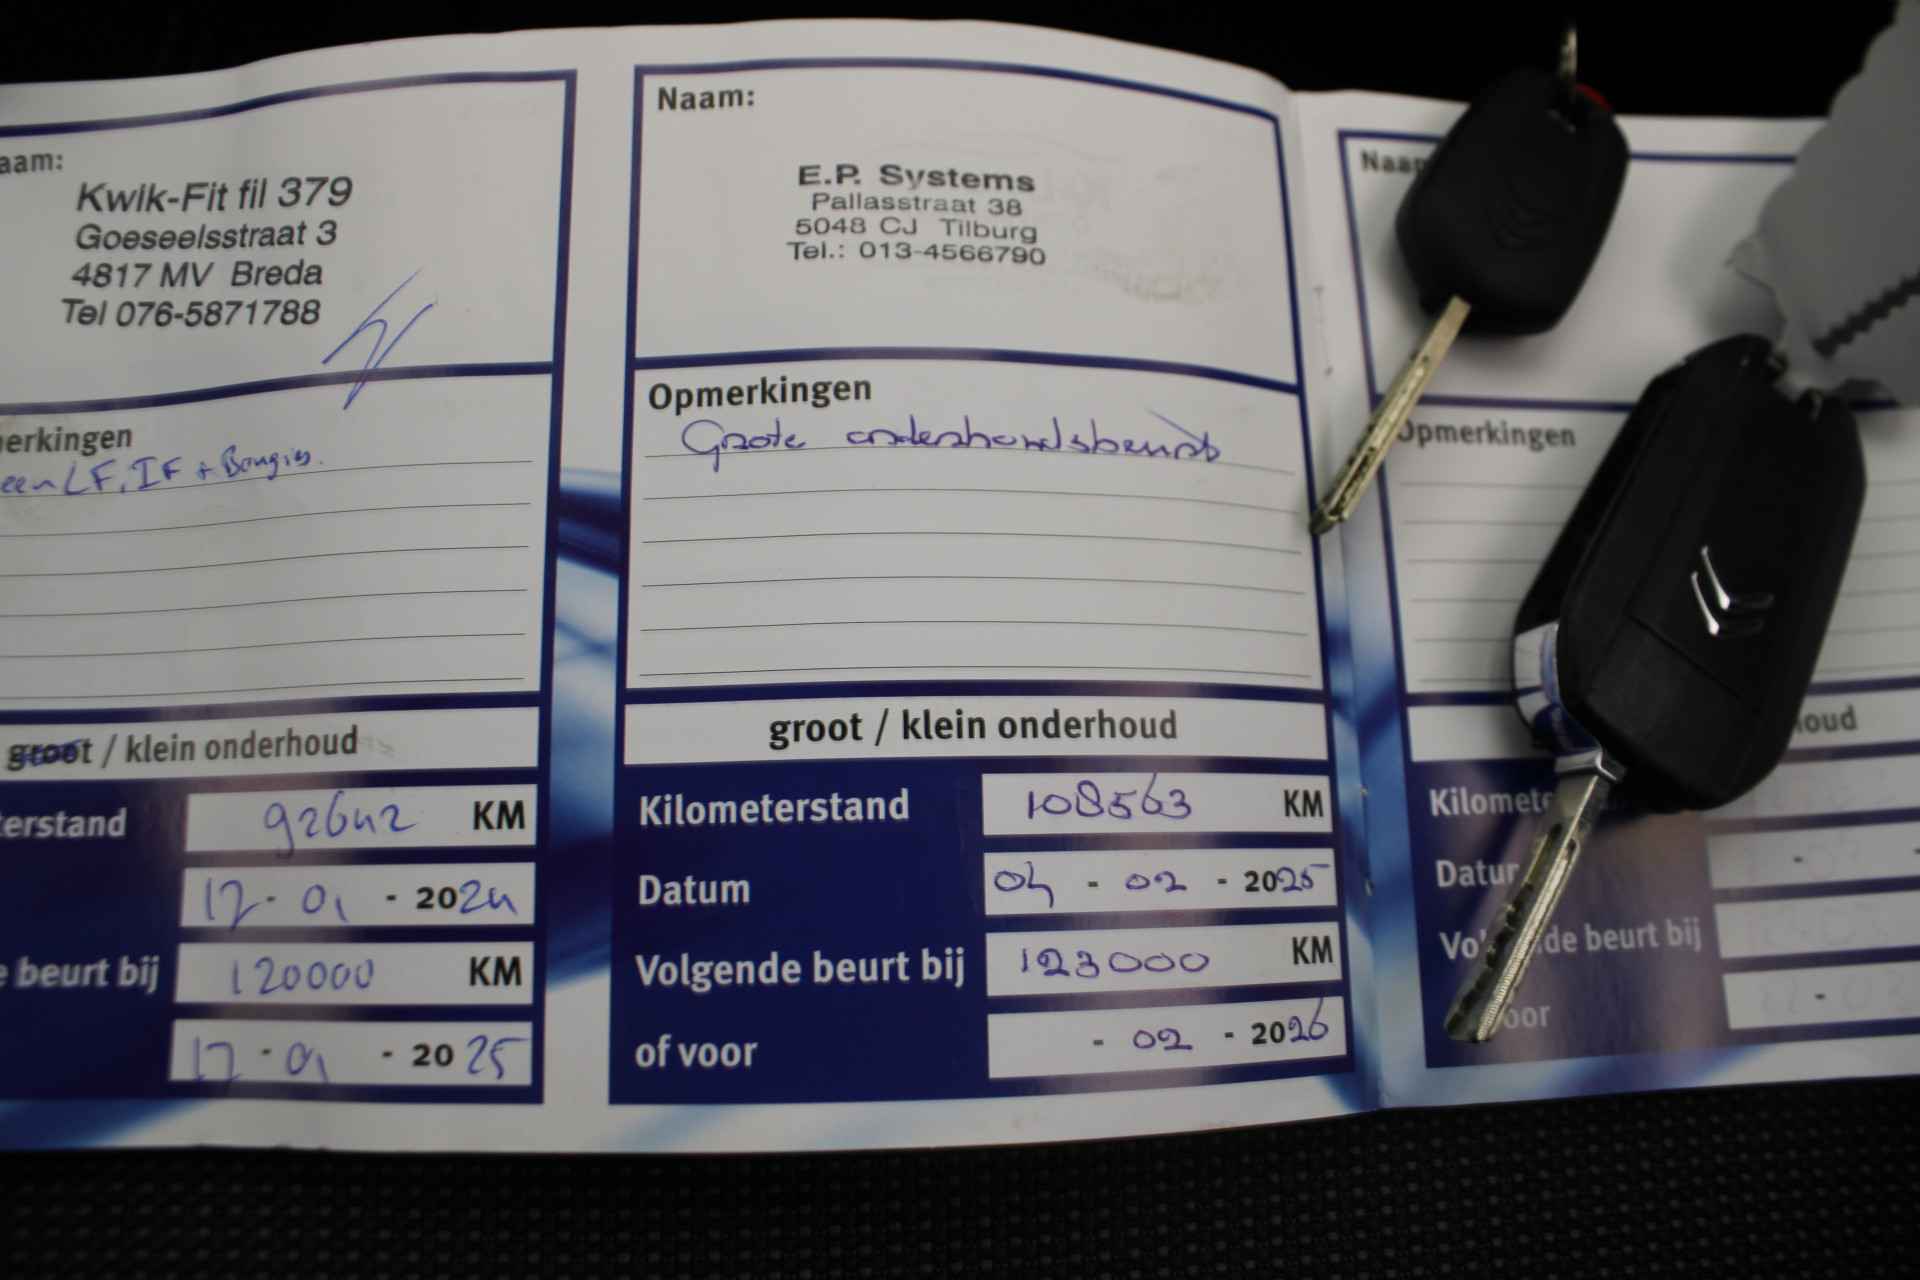 aam:
Kwik-Fit fil 379
Goeseelsstraat 3
4817 MV Breda
Tel 076-5871788
erkingen
een LF, IF + Bougies.
groot / klein onderhoud
erstand 92642 KM
17-01-2024
beurt bij 120000 KM
17-01-2025
Naam:
E.P. Systems
Pallasstraat 38
5048 CJ Tilburg
Tel.: 013-4566790
Opmerkingen
Grote onderhoudsbeurt
groot / klein onderhoud
Kilometerstand 108563 KM
Datum 04-02-2025
Volgende beurt bij 123000 KM
of voor -02-2026
Naam
Opmerkingen
oud
Kilomete
Datu
Vo de beurt bij
oor